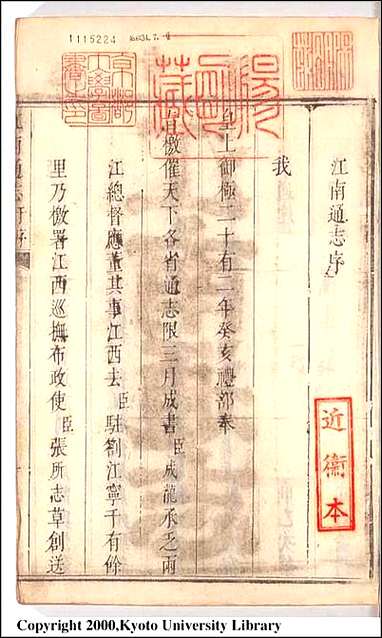 1115224
江南通志序
我
皇上御極二十有二年癸亥禮部奉
旨檄催天下各省通志限三月成書臣成龍承乏兩
江總督應董其事江西去臣駐劄江寧千有餘
里乃檄署江西巡撫布政使臣張所志草創送
近衞本
京都
大學圖
書之印
Copyright 2000,Kyoto University Library